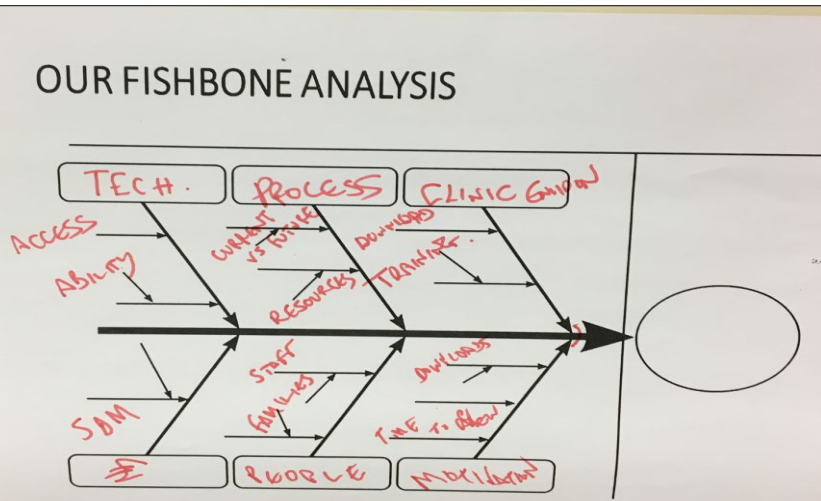 OUR FISHBONE ANALYSIS
TECH.
PROCESS
CLINIC
ACCESS
ABILITY
CURRENT
VS FUTURE
RESOURCES
DOWNLOAD
TRAINING.
SDM
STAFF
FAMILIES
DOWNLOADS
TIME TO
PEOPLE
MOTIVATION